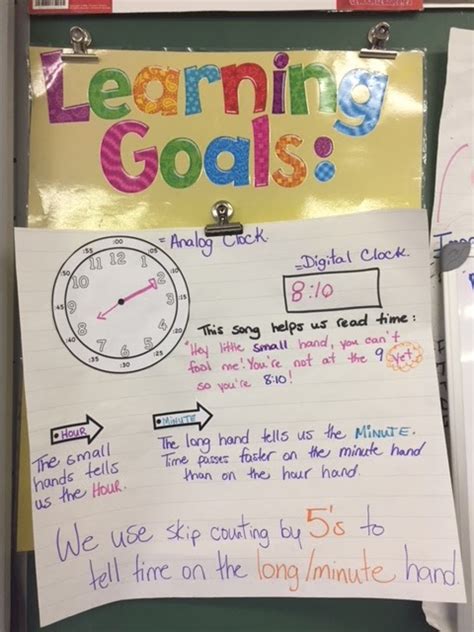 Learning
Goals:
= Analog Clock.
= Digital Clock.
:00
:05
:55
12
11
1
10
2
9
3
8
4
7
5
6
8:10
This song helps us read time:
"Hey little small hand, you can't
fool me! You're not at the 9 yet,
so you're 8:10!
HOUR
The small
hands tells
us the HOUR.
MINUTE
The long hand tells us the MINUTE.
Time passes faster on the minute hand
than on the hour hand.
We use skip counting by 5's to
tell time on the long/minute hand.